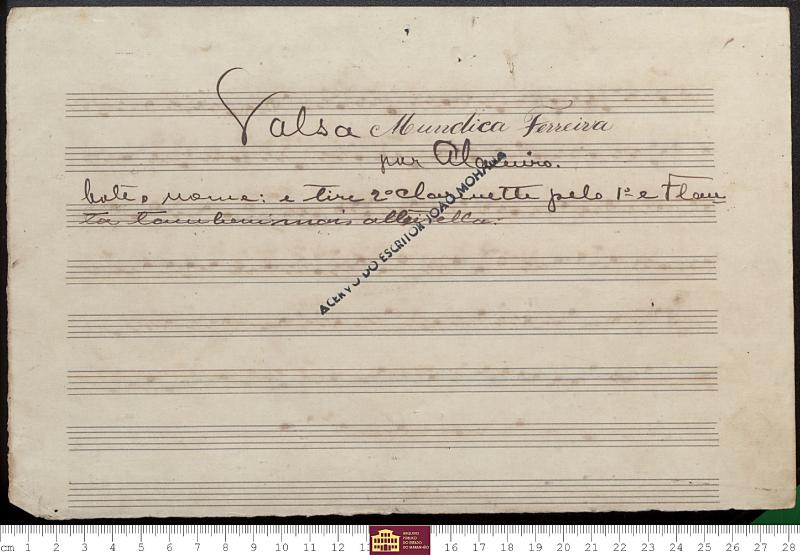 Valsa Mundica Ferreira
por
bote o nome: e tire 2º Clarinette pelo 1º e Flau
ta tambem mais
ACERVO DO ESCRITOR JOÃO MOHANA
cm 1 2 3 4 5 6 7 8 9 10 11 12 16 17 18 19 20 21 22 23 24 25 26 27 28
ARQUIVO
PÚBLICO
DO ESTADO
DO MARANHÃO